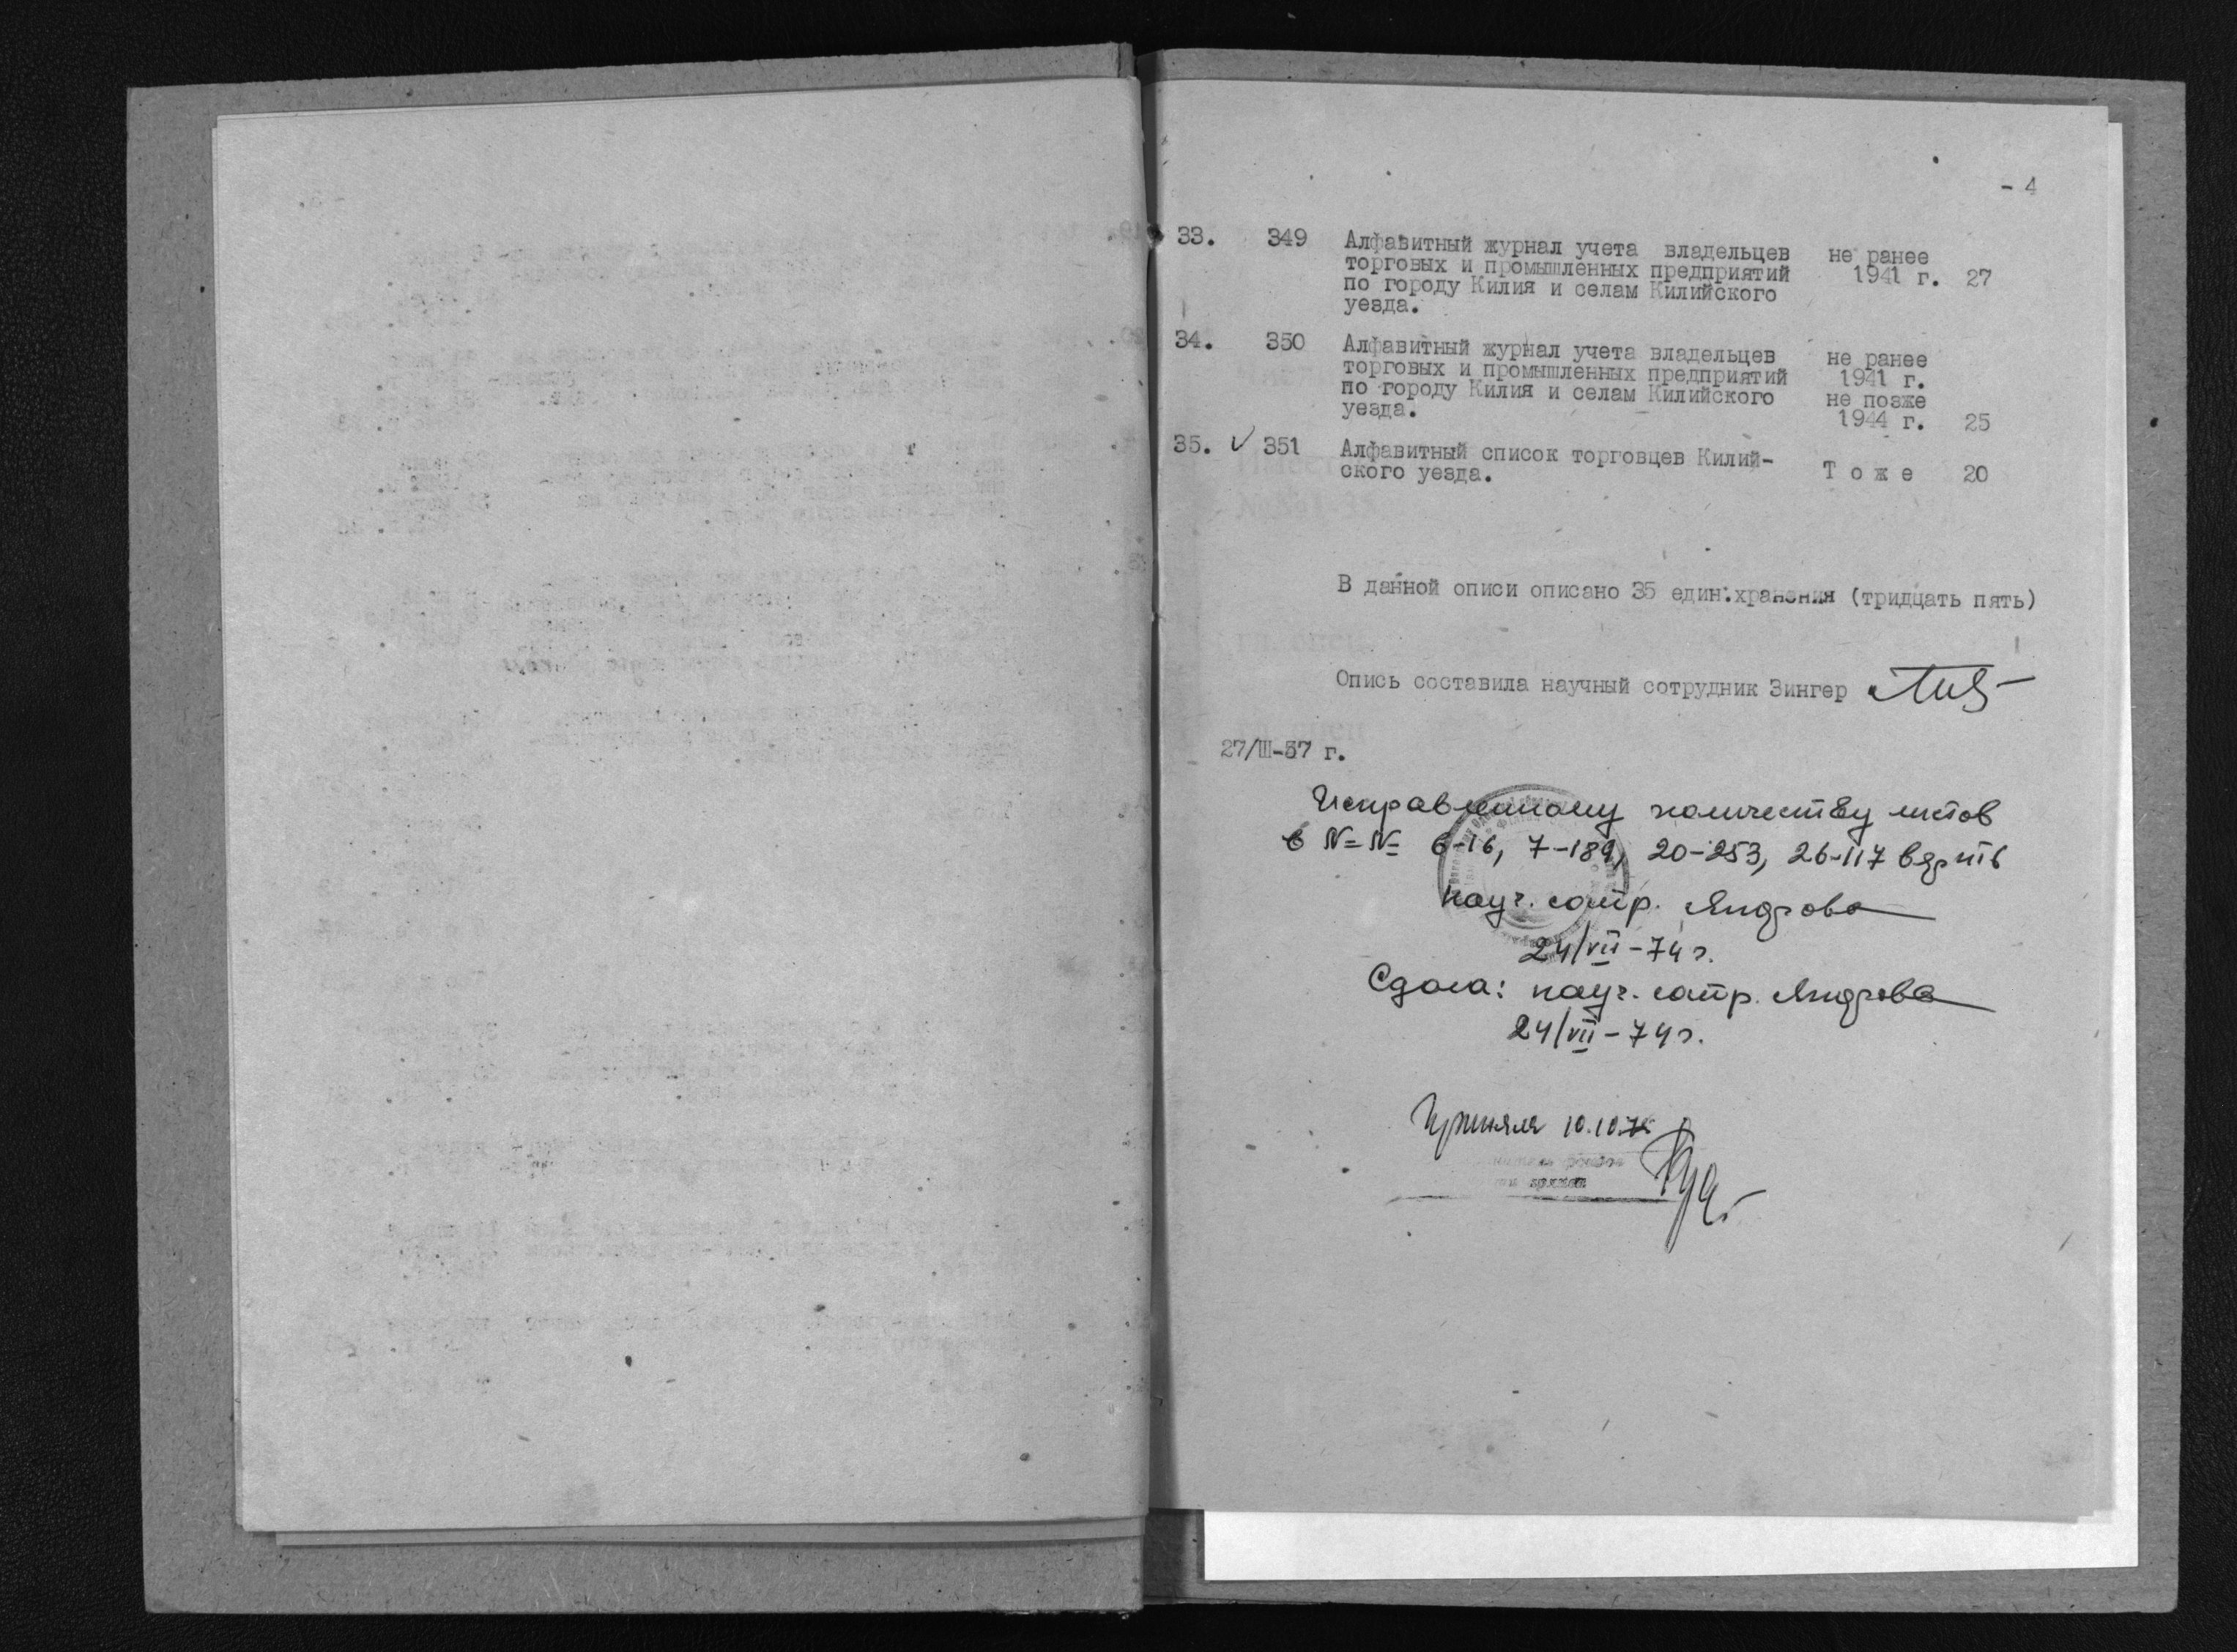 - 4
33. 349 Алфавитный журнал учета владельцев не ранее
торговых и промышленных предприятий 1941 г. 27
по городу Килия и селам Килийского
уезда.
34. 350 Алфавитный журнал учета владельцев не ранее
торговых и промышленных предприятий 1941 г.
по городу Килия и селам Килийского не позже
уезда. 1944 г. 25
35. √ 351 Алфавитный список торговцев Килий-
ского уезда. Т о ж е 20
В данной описи описано 35 един.хранения (тридцать пять)
Опись составила научный сотрудник Зингер
27/III-57 г.
Исправленному количеству листов
в №№ 6-16, 7-189, 20-253, 26-117 верить
науч. сотр.
24/VII-74 г.
Сдала: науч. сотр.
24/VII-74 г.
Приняла 10.10.74